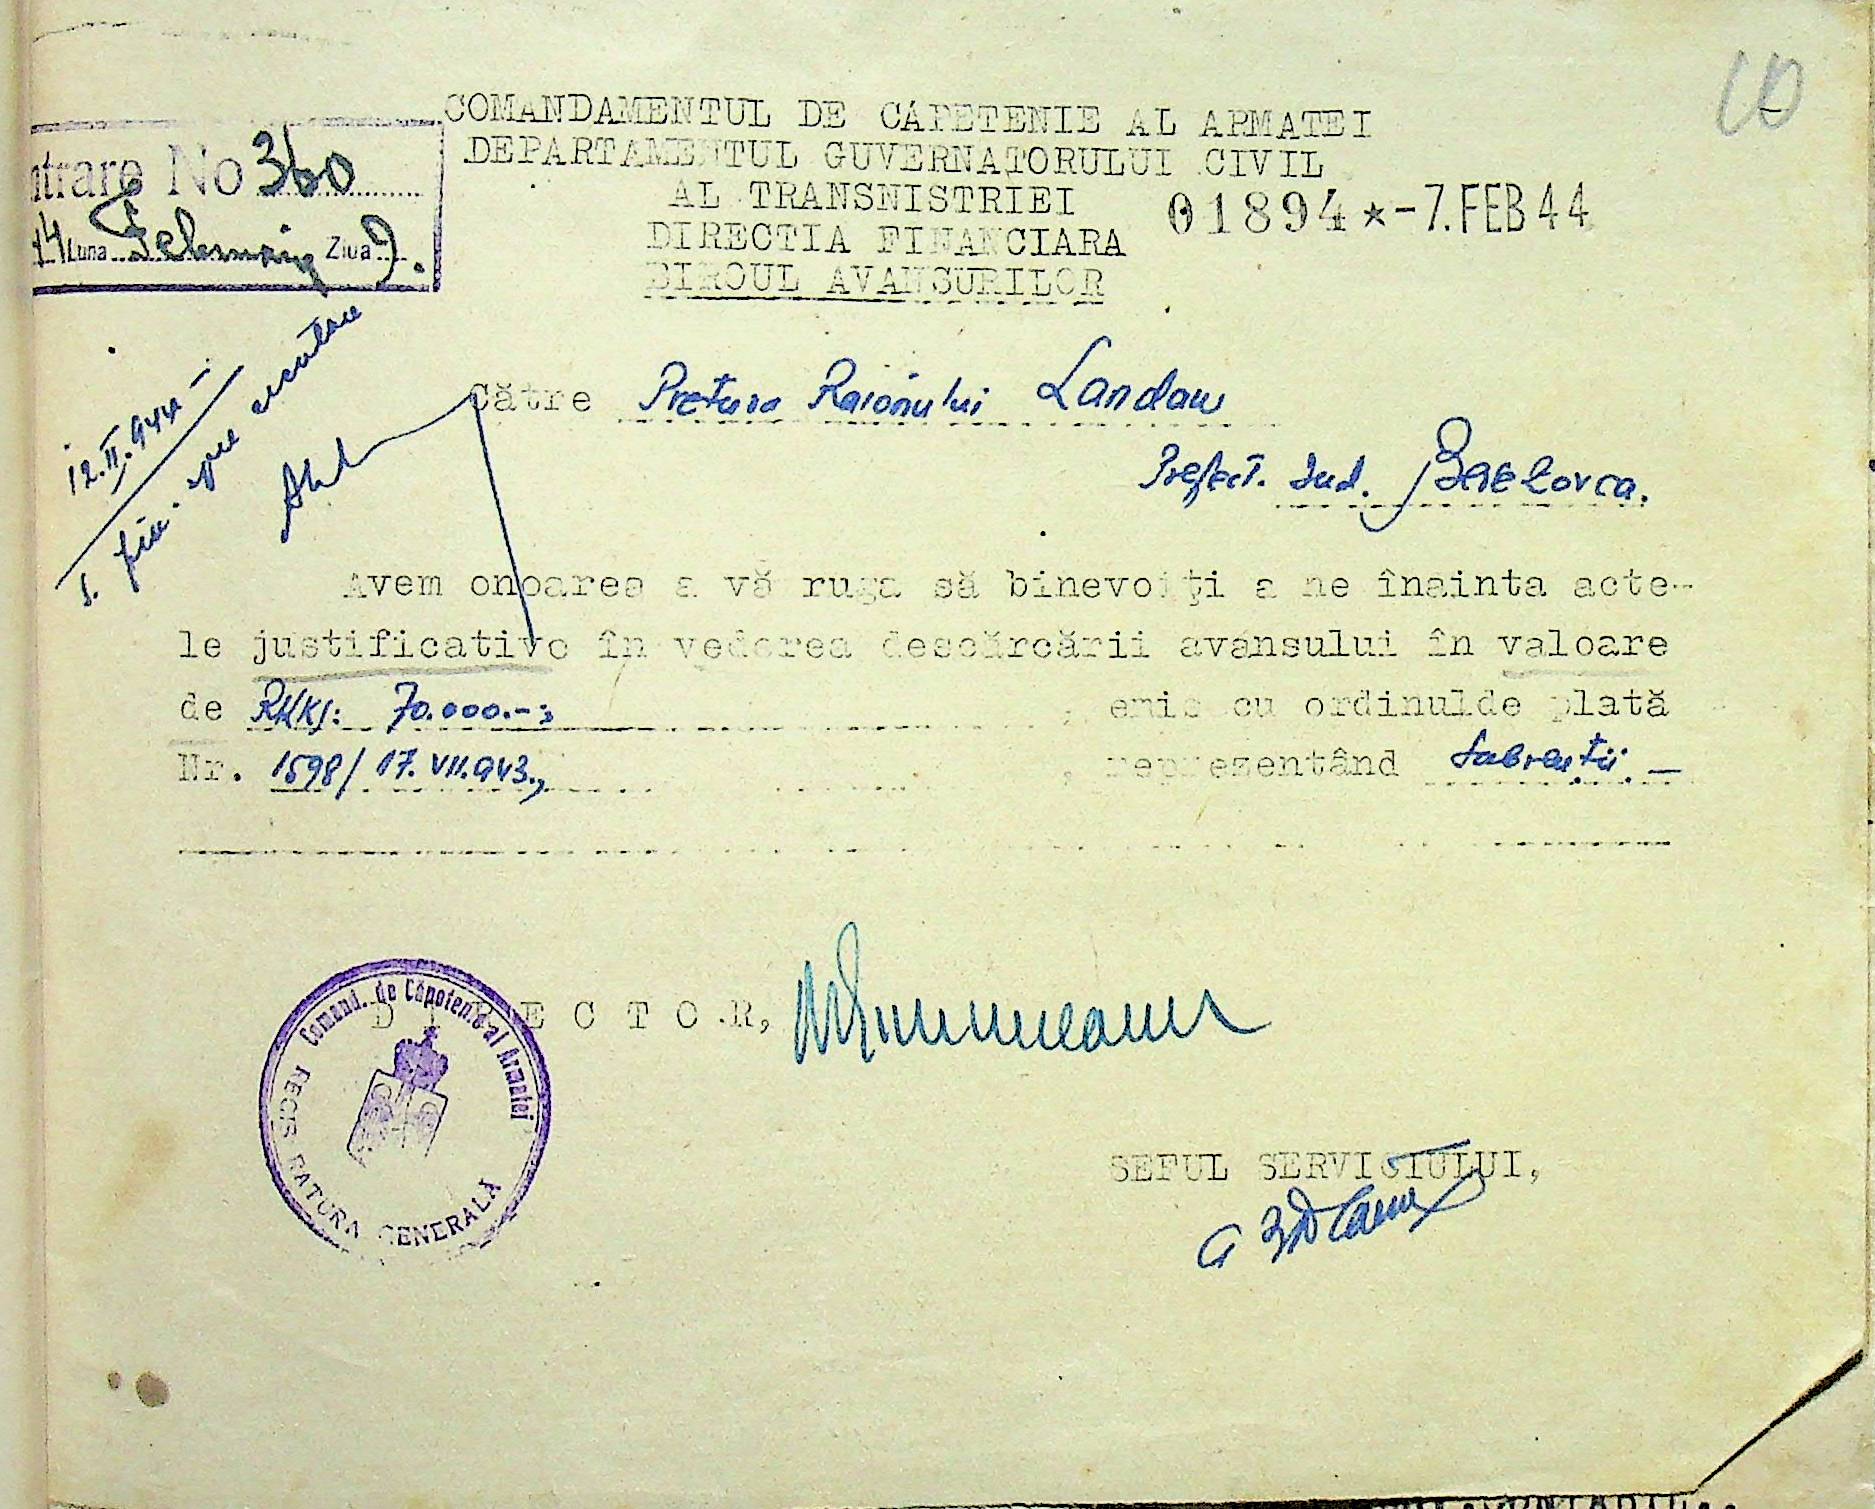 10
COMANDAMENTUL DE CAPETENIE AL ARMATEI
DEPARTAMENTUL GUVERNATORULUI CIVIL
AL TRANSNISTRIEI
DIRECTIA FINANCIARA
BIROUL AVANSURILOR
01894 ★ -7. FEB 44
ntrare No 360
44 Luna Februarie Ziua 9.
12.II.944
spre executare
Către Pretura Raionului Landau
Prefect. Jud. Berezovca.
Avem onoarea a vă ruga să binevoiţi a ne înainta acte-
le justificative în vederea descărcării avansului în valoare
de RKKS: 70.000.-; , emis cu ordinulde plată
Nr. 1598/17.VII.943., , reprezentând
D I R E C T O R,
Comand. de Căpetenie al Armatei
REGISTRATURA GENERALĂ
SEFUL SERVICIULUI,